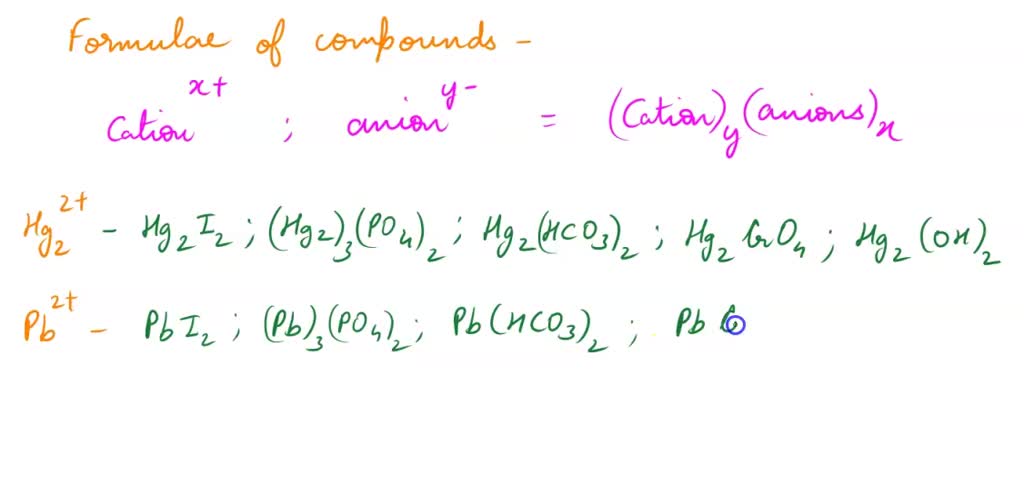 Formulae of compounds -
Cation^x+ ; anion^y- = (Cation)_y (anions)_x
Hg₂²⁺ - Hg₂I₂ ; (Hg2)₃(PO₄)₂ ; Hg₂(HCO₃)₂ ; Hg₂CrO₄ ; Hg₂(OH)₂
Pb²⁺ - PbI₂ ; (Pb)₃(PO₄)₂ ; Pb(HCO₃)₂ ; Pb